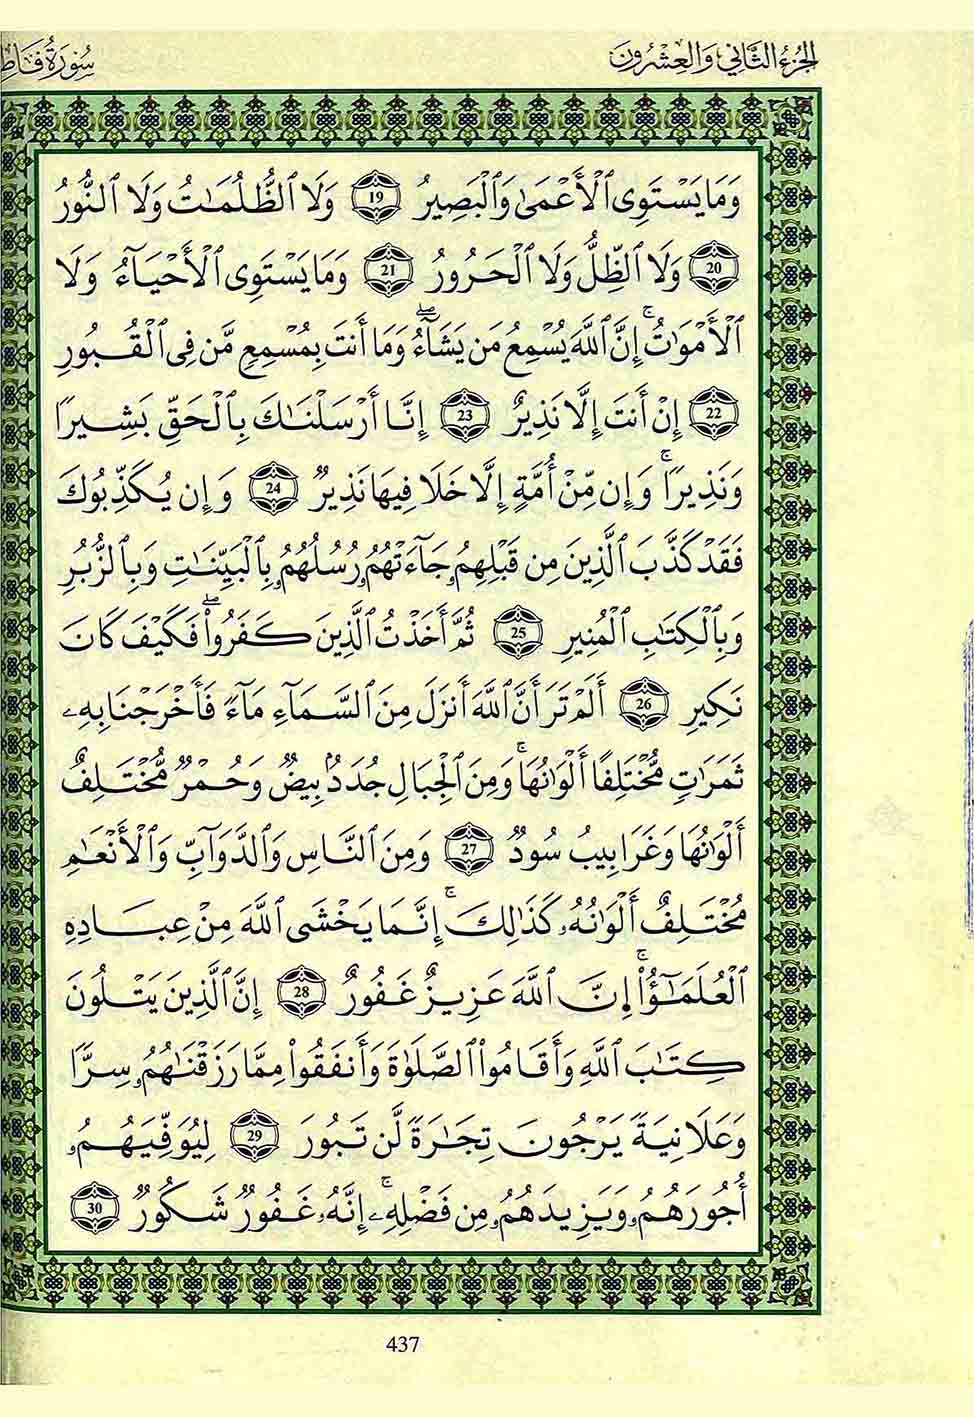 الجُزءُ الثَّانِي وَالعِشْرُونَ
سُورَةُ فَاطِ
وَمَا يَسْتَوِى ٱلْأَعْمَىٰ وَٱلْبَصِيرُ 19 وَلَا ٱلظُّلُمَـٰتُ وَلَا ٱلنُّورُ
20 وَلَا ٱلظِّلُّ وَلَا ٱلْحَرُورُ 21 وَمَا يَسْتَوِى ٱلْأَحْيَآءُ وَلَا
ٱلْأَمْوَٰتُ ۚ إِنَّ ٱللَّهَ يُسْمِعُ مَن يَشَآءُ ۖ وَمَا أَنتَ بِمُسْمِعٍ مَّن فِى ٱلْقُبُورِ
22 إِنْ أَنتَ إِلَّا نَذِيرٌ 23 إِنَّا أَرْسَلْنَـٰكَ بِٱلْحَقِّ بَشِيرًا
وَنَذِيرًا ۚ وَإِن مِّنْ أُمَّةٍ إِلَّا خَلَا فِيهَا نَذِيرٌ 24 وَإِن يُكَذِّبُوكَ
فَقَدْ كَذَّبَ ٱلَّذِينَ مِن قَبْلِهِمُۥ جَآءَتْهُمُۥ رُسُلُهُمُۥ بِٱلْبَيِّنَـٰتِ وَبِٱلزُّبُرِ
وَبِٱلْكِتَـٰبِ ٱلْمُنِيرِ 25 ثُمَّ أَخَذْتُ ٱلَّذِينَ كَفَرُوا۟ ۖ فَكَيْفَ كَانَ
نَكِيرِ 26 أَلَمْ تَرَ أَنَّ ٱللَّهَ أَنزَلَ مِنَ ٱلسَّمَآءِ مَآءً فَأَخْرَجْنَا بِهِۦ
ثَمَرَٰتٍ مُّخْتَلِفًا أَلْوَٰنُهَا ۚ وَمِنَ ٱلْجِبَالِ جُدَدٌۢ بِيضٌ وَحُمْرٌ مُّخْتَلِفٌ
أَلْوَٰنُهَا وَغَرَابِيبُ سُودٌ 27 وَمِنَ ٱلنَّاسِ وَٱلدَّوَآبِّ وَٱلْأَنْعَـٰمِ
مُخْتَلِفٌ أَلْوَٰنُهُۥ كَذَٰلِكَ ۚ إِنَّمَا يَخْشَى ٱللَّهَ مِنْ عِبَادِهِ
ٱلْعُلَمَـٰٓؤُا۟ ۚ إِنَّ ٱللَّهَ عَزِيزٌ غَفُورٌ 28 إِنَّ ٱلَّذِينَ يَتْلُونَ
كِتَـٰبَ ٱللَّهِ وَأَقَامُوا۟ ٱلصَّلَوٰةَ وَأَنفَقُوا۟ مِمَّا رَزَقْنَـٰهُمُۥ سِرًّا
وَعَلَانِيَةً يَرْجُونَ تِجَـٰرَةً لَّن تَبُورَ 29 لِيُوَفِّيَهُمُۥ
أُجُورَهُمُۥ وَيَزِيدَهُمُۥ مِن فَضْلِهِۦ ۚ إِنَّهُۥ غَفُورٌ شَكُورٌ 30
437